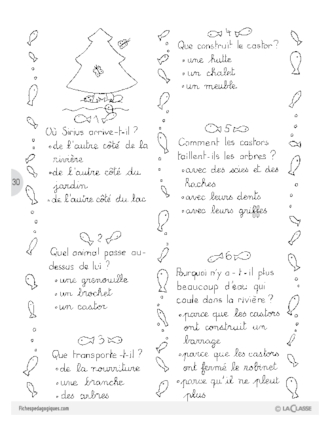 1
Où Sirius arrive-t-il ?
• de l'autre côté de la
rivière
• de l'autre côté du
jardin
• de l'autre côté du lac
2
Quel animal passe au-
dessus de lui ?
• une grenouille
• un brochet
• un castor
3
Que transporte-t-il ?
• de la nourriture
• une branche
• des arbres
4
Que construit le castor ?
• une hutte
• un chalet
• un meuble
5
Comment les castors
taillent-ils les arbres ?
• avec des scies et des
haches
• avec leurs dents
• avec leurs griffes
6
Pourquoi n'y a-t-il plus
beaucoup d'eau qui
coule dans la rivière ?
• parce que les castors
ont construit un
barrage
• parce que les castors
ont fermé le robinet
• parce qu'il ne pleut
plus
30
Fichespedagogiques.com
© LA CLASSE